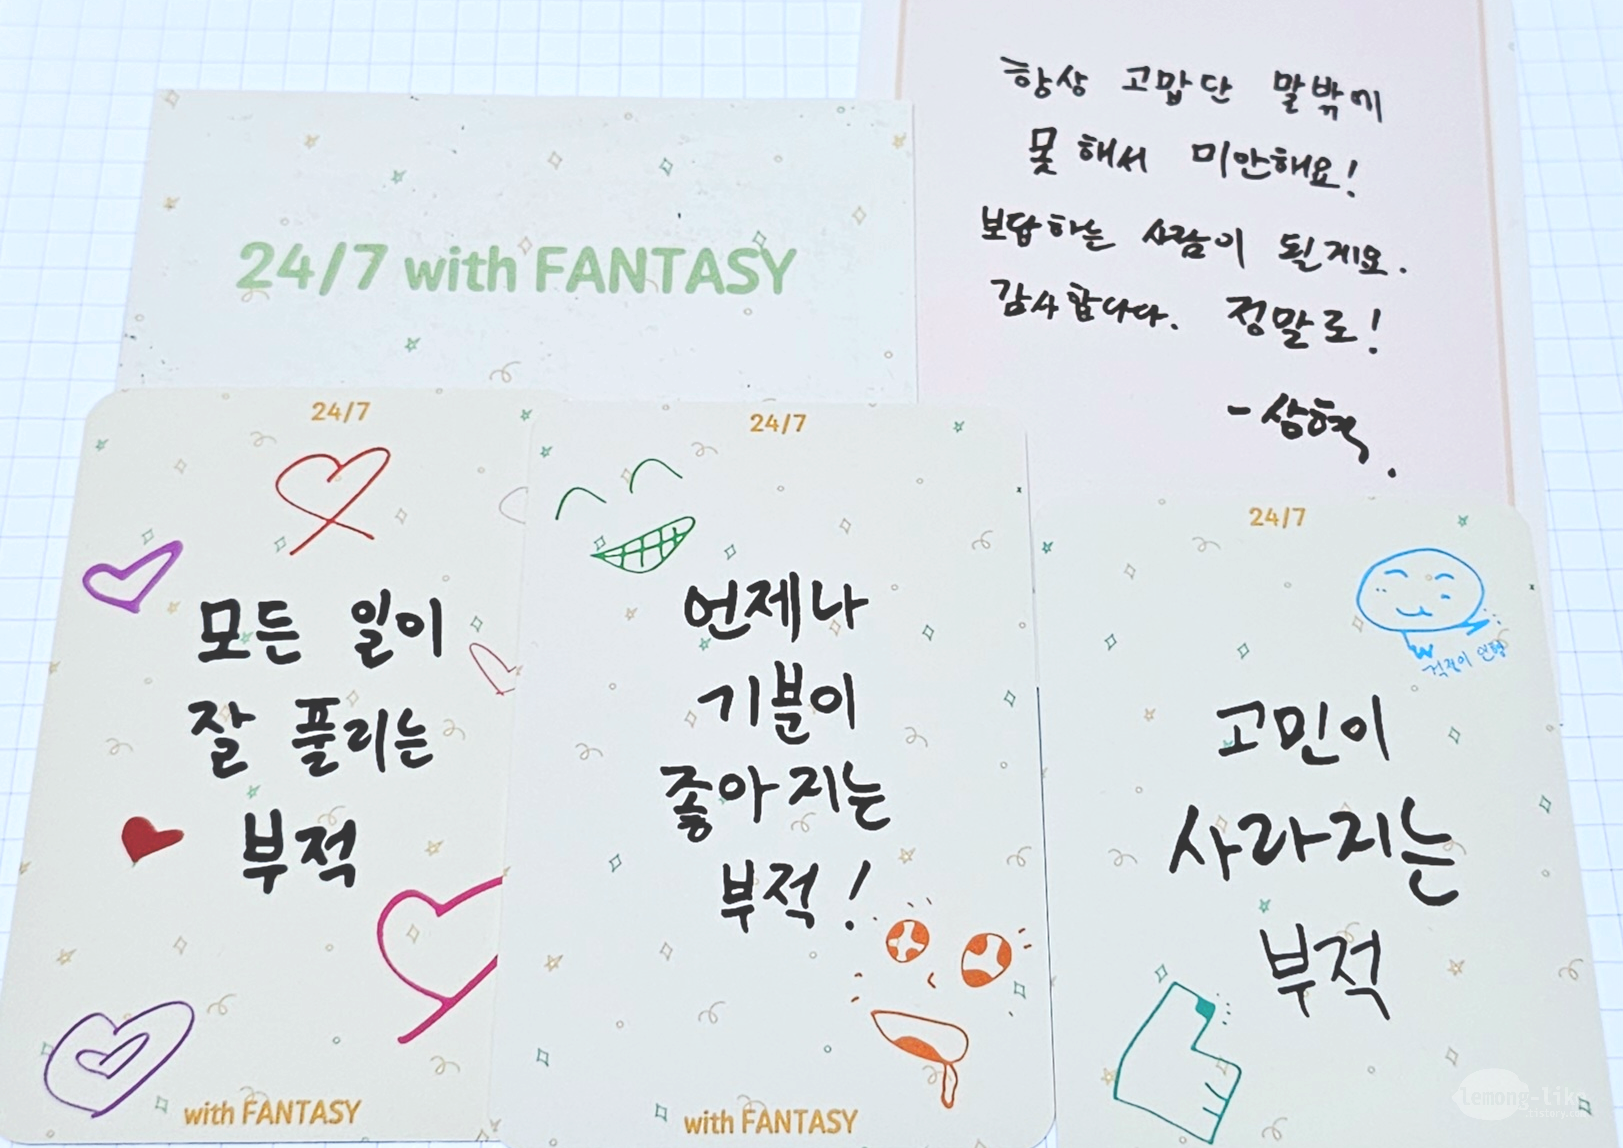 항상 고맙단 말밖에
못 해서 미안해요!
보답하는 사람이 될게요.
감사합니다. 정말로!
-상혁.
24/7 with FANTASY
24/7
모든 일이
잘 풀리는
부적
with FANTASY
24/7
언제나
기분이
좋아지는
부적!
with FANTASY
24/7
걱정이 인형
고민이
사라지는
부적